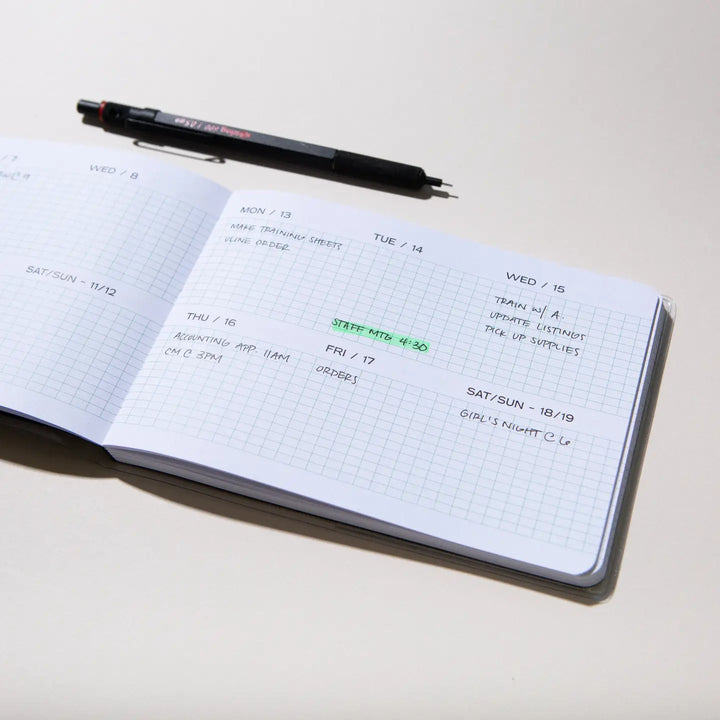 WED / 8
SAT/SUN - 11/12
MON / 13
MAKE TRAINING SHEETS
ULINE ORDER
TUE / 14
STAFF MTG 4:30
WED / 15
TRAIN W/ A.
UPDATE LISTINGS
PICK UP SUPPLIES
THU / 16
ACCOUNTING APP. 11AM
CM C 3PM
FRI / 17
ORDERS
SAT/SUN - 18/19
GIRL'S NIGHT C 6